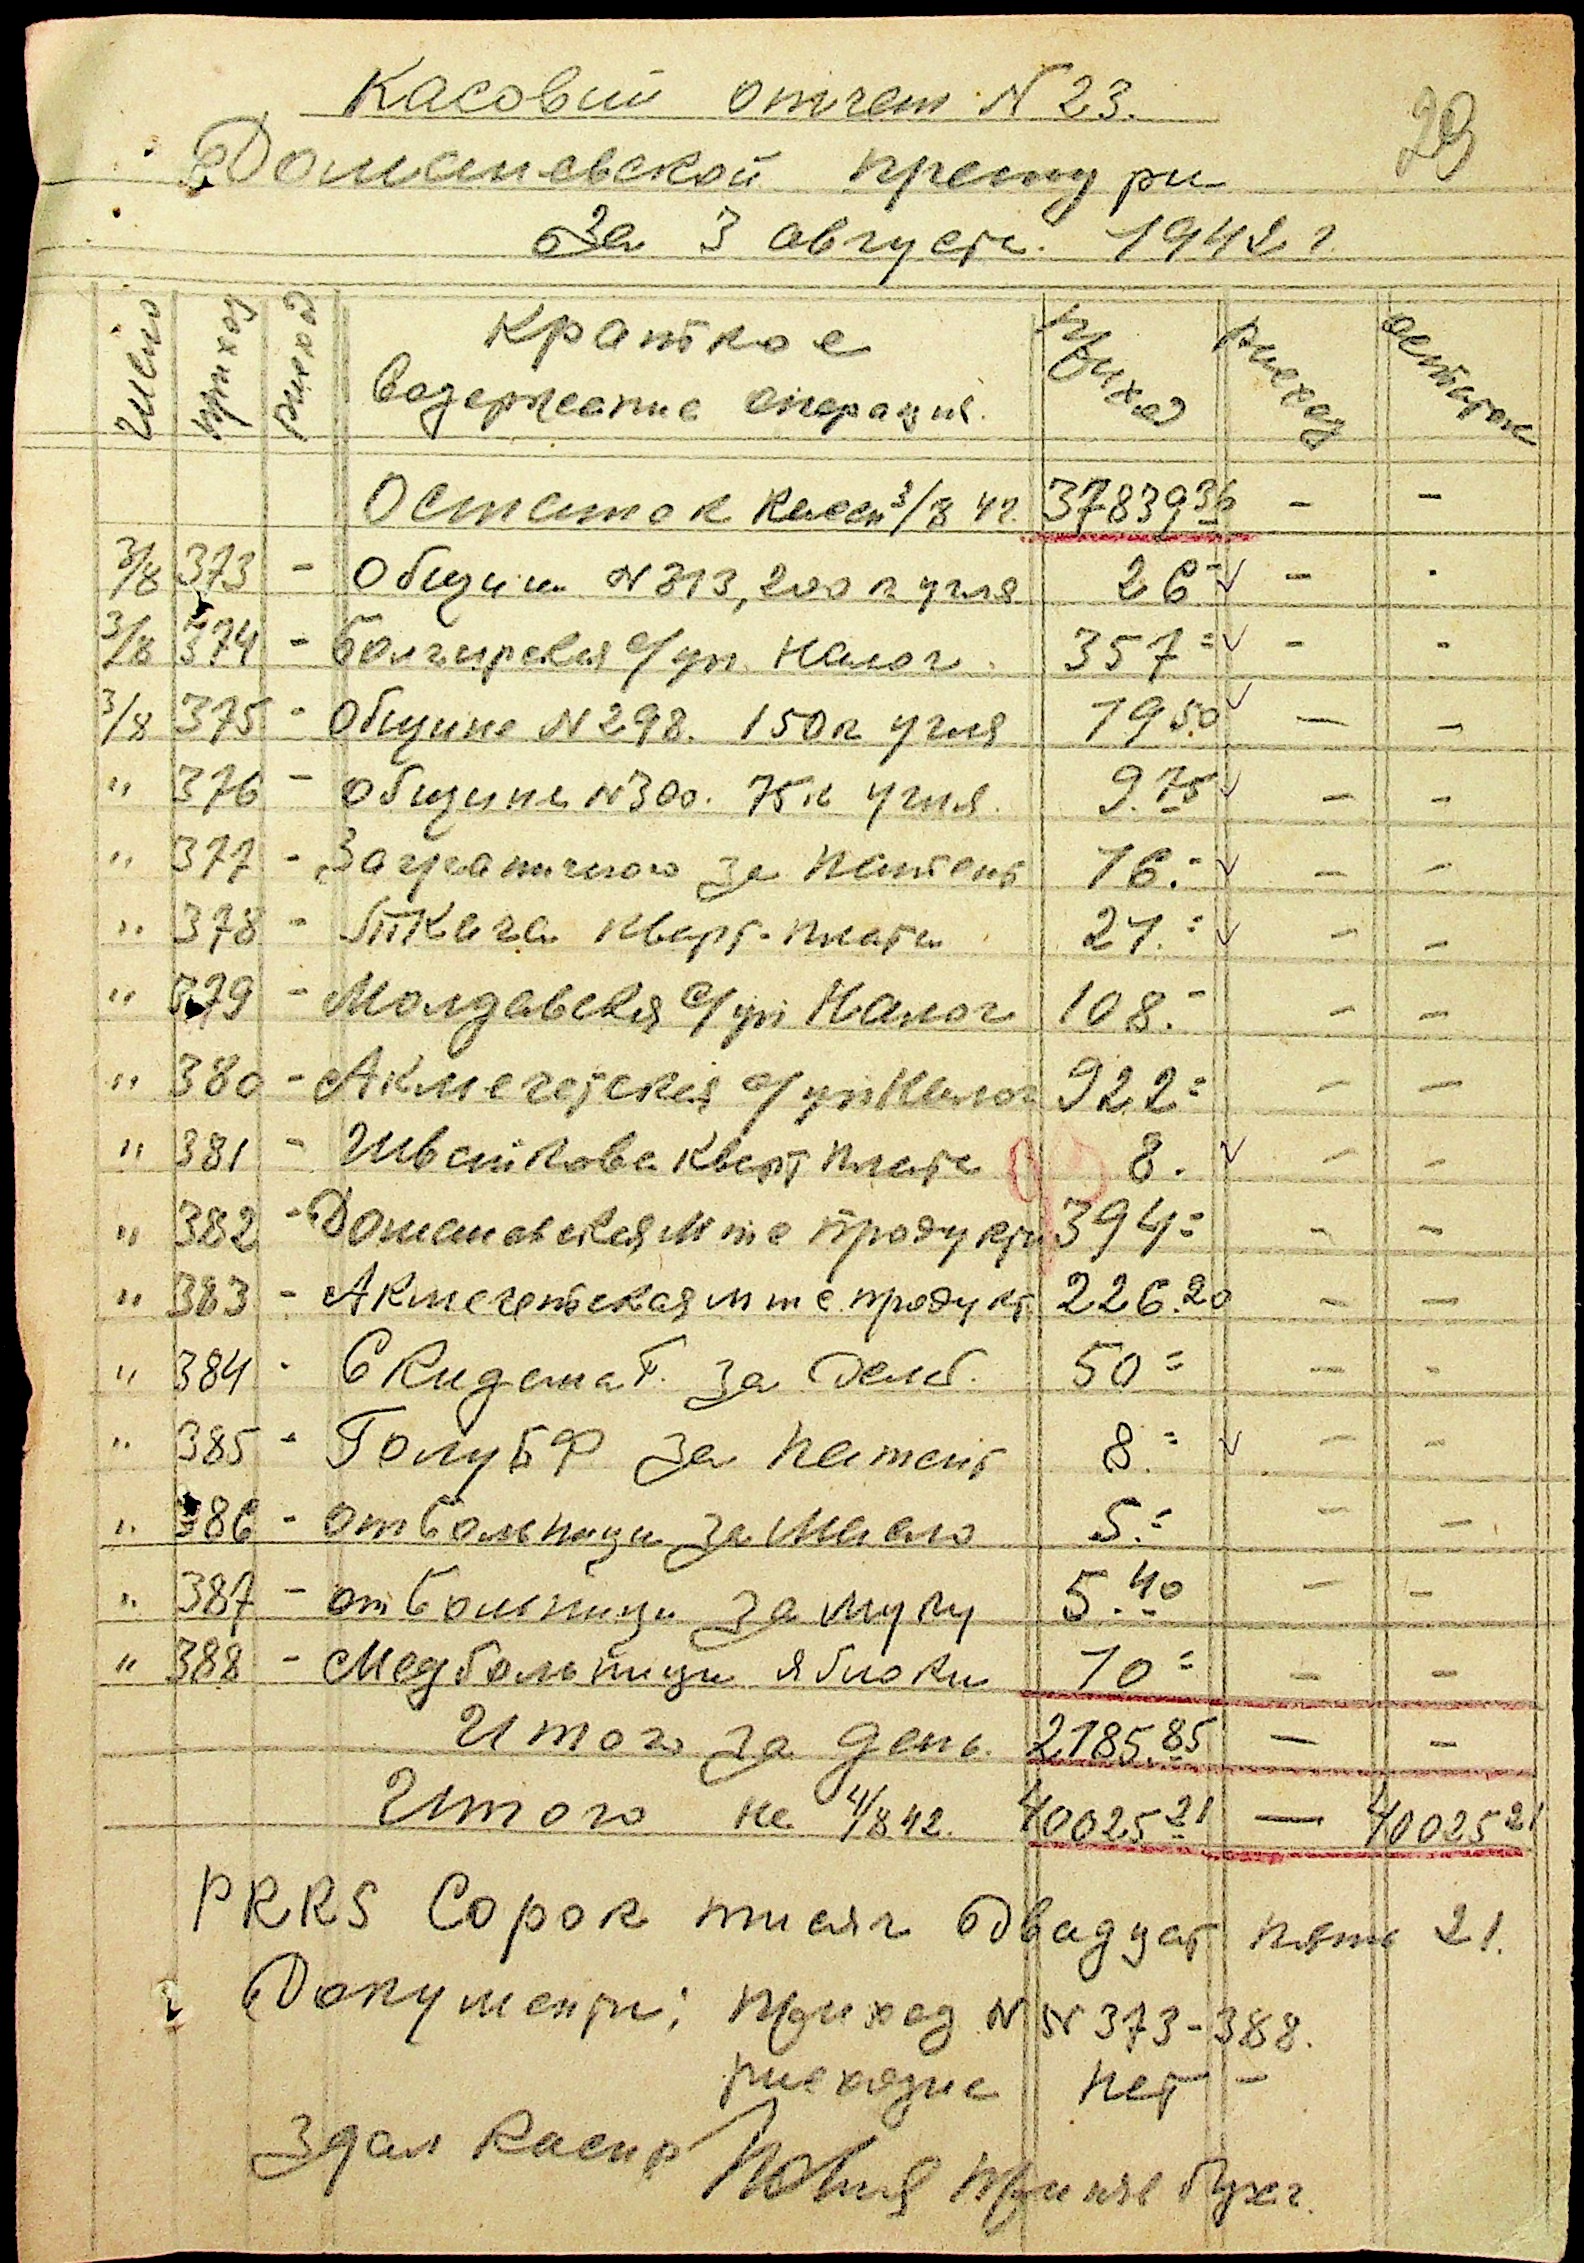 Касовий отчет N 23.
29
Доманевской претури
За 3 августа 1942 г.
число приход расход Краткое содержание операция. приход расход остаток
Остаток касси 3/8 42. 37839 36 - -
3/8 373 - Общини N 313, 200 к угля 26 = - -
3/8 374 - Болгарская с/уп. Налог. 357 = - -
3/8 375 - Общине N 298. 150 к угля 19 50 - -
" 376 - общине N 300. 75 к угля. 9.75 - -
" 377 - за патент 16.= - -
" 378 - Ткача кварт. плата 21.= - -
" 379 - Молдавская с/уп Налог 108.- - -
" 380 - Акмечетская с/уп Налог 922= - -
" 381 - Швайкова кварт плата 8. - -
" 382 - Доманевская м те продукти 394= - -
" 383 - Акмечетская м те продукт. 226.20 - -
" 384 - за 50= - -
" 385 - Голуб Ф за патент 8.= - -
" 386 - от больници за масло 5.= - -
" 387 - от больници за муку 5.40 - -
" 388 - Мед больници яблоки 10= - -
Итого за день. 2185.85 - -
Итого на 4/8 42. 40025 21 - 40025 21
РКRS Сорок тисяч двадцат пять 21.
Документи; приход N N 373-388.
расходние нет -
Здал касир принял бухг.